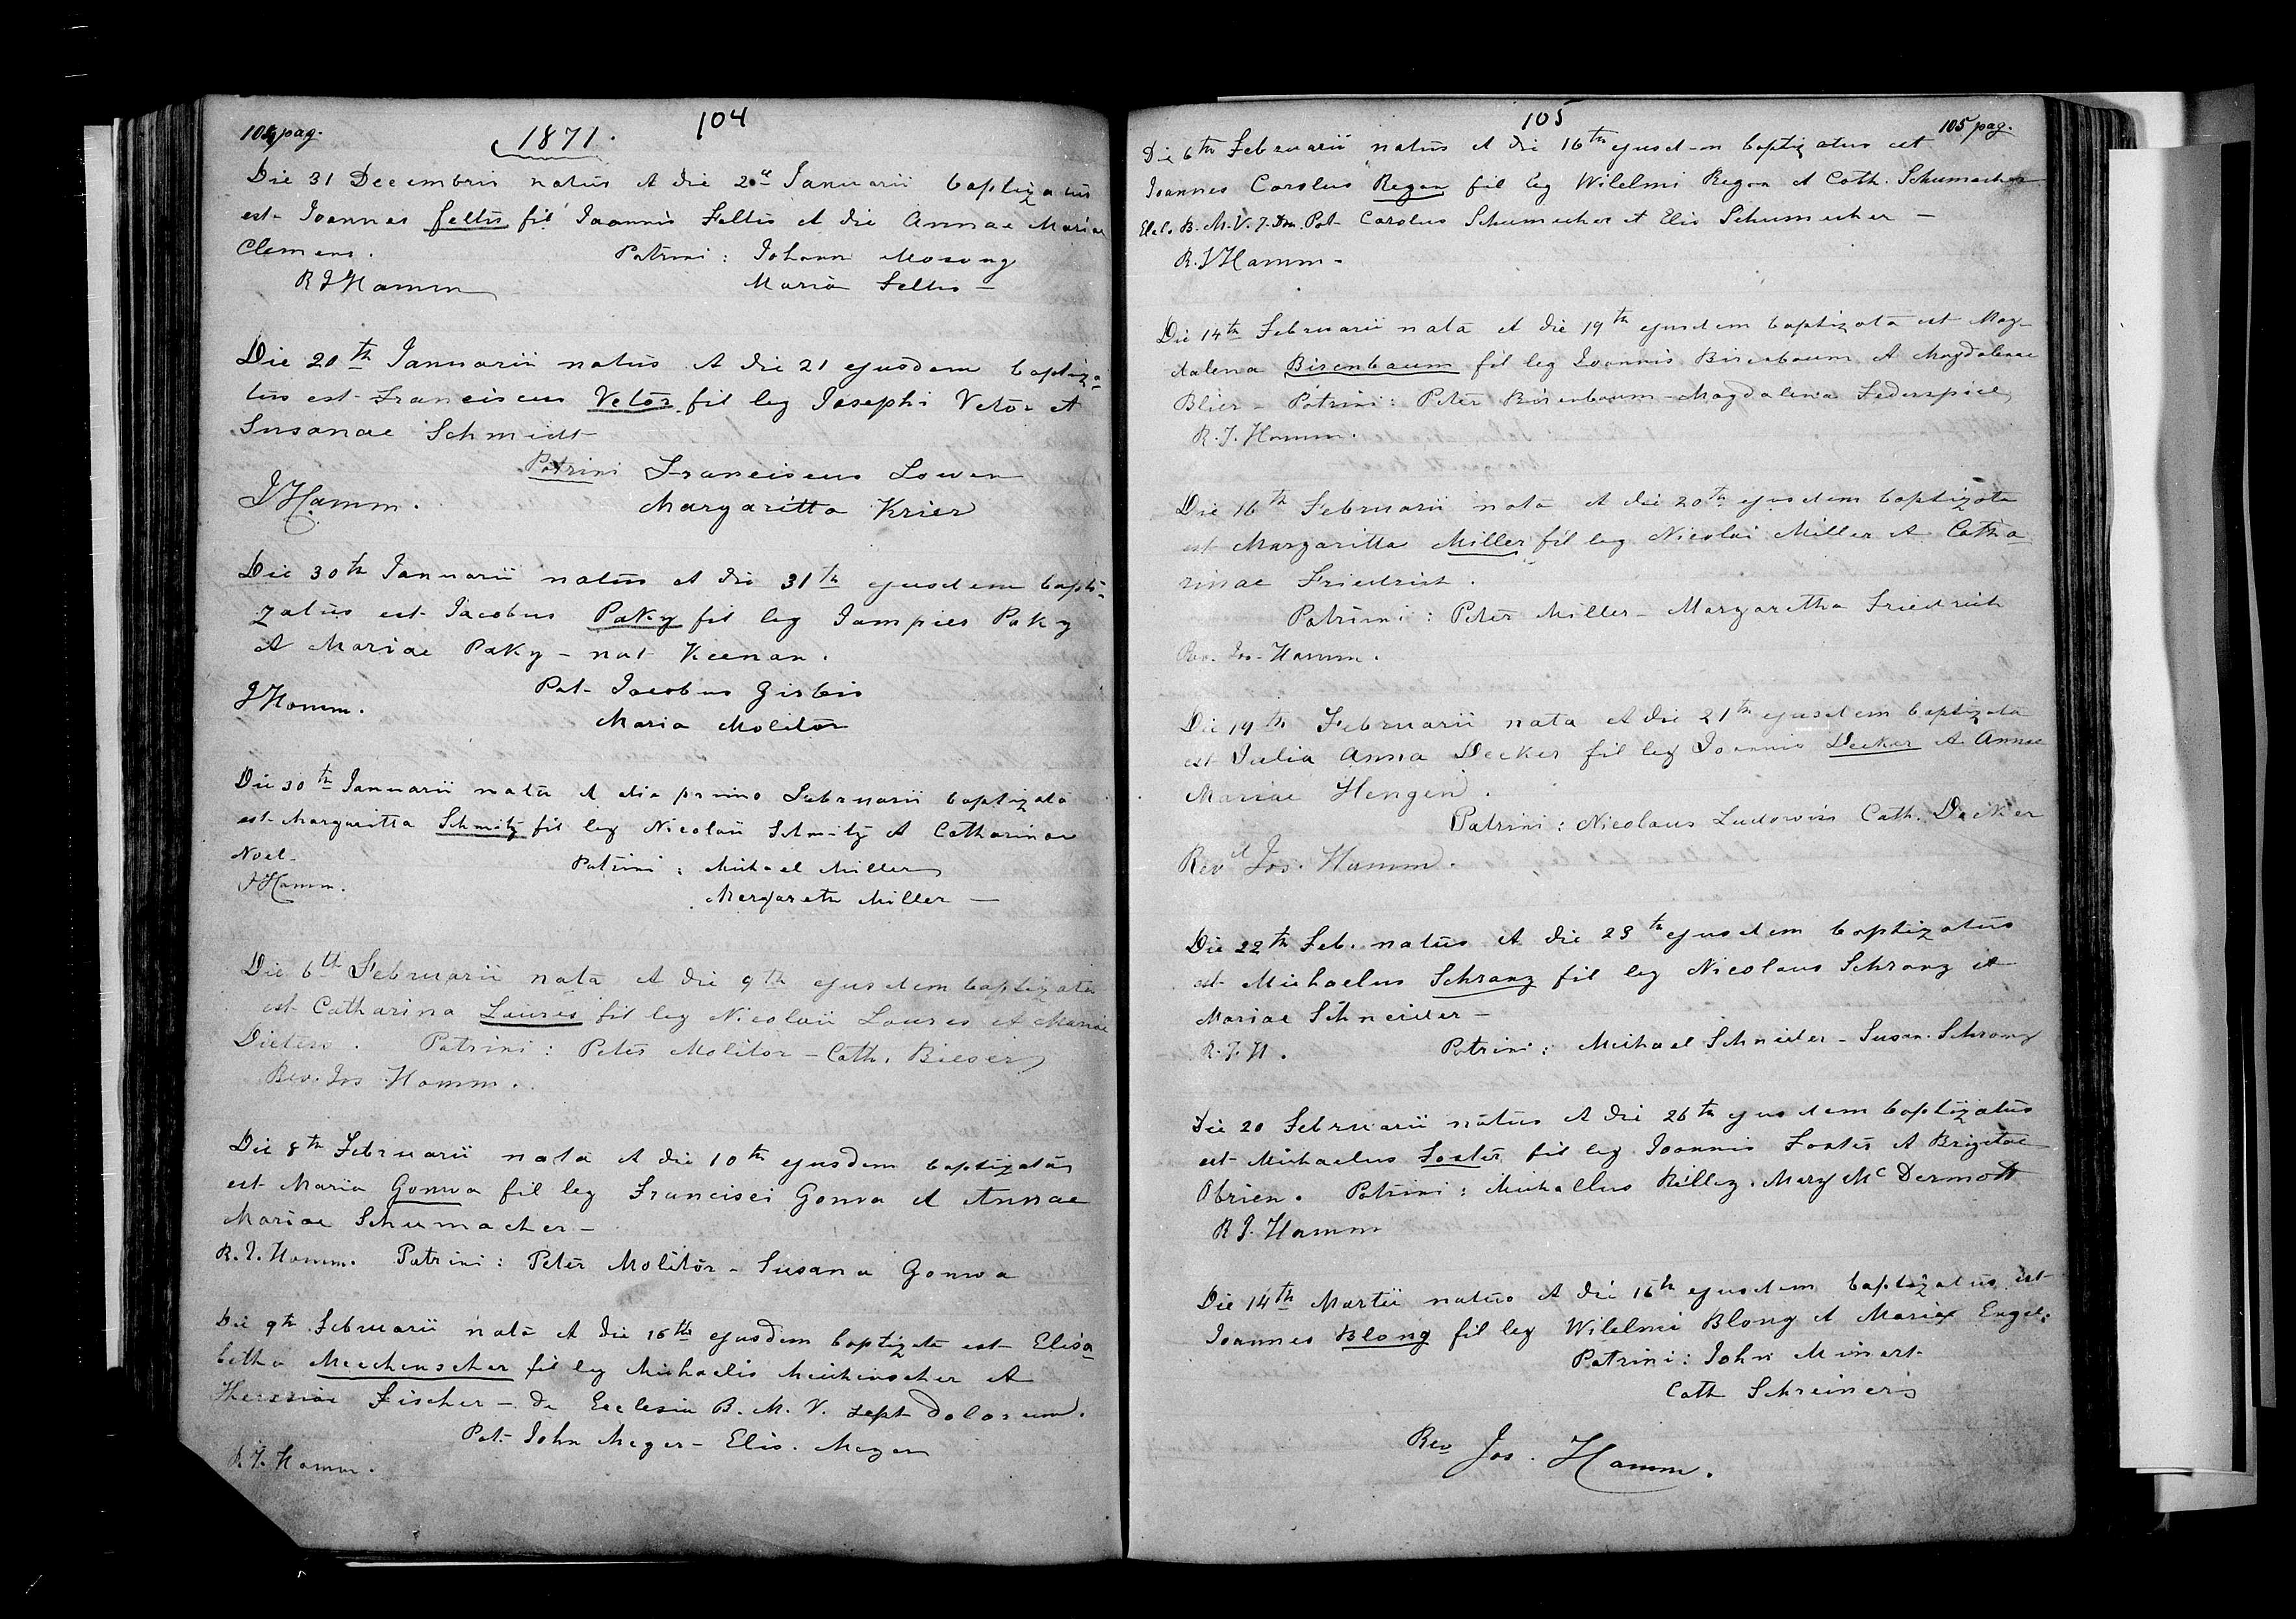 104 pag.
1871.
104
Die 31 Decembris natus et die 2d Januarii baptizatus
est Joannes Feltis fil Joannis Feltis et die Annae Mariae
Clemens. Patrini: Johann Mosong
R J Hamm Maria Feltis -
Die 20th Januarii natus et die 21 ejusdem baptiza-
tus est Franciscus Vetor fil leg Josephi Vetor et
Susanae Schmidt
Patrini Franciscus Lowen
J Hamm. Margaritta Krier
Die 30th Januarii natus et die 31th ejusdem bapti-
zatus est Jacobus Paky fil leg Jampies Paky
et Mariae Paky - nat Keenan.
Pat- Jacobus Girbis
J Hamm. Maria Molitor
Die 30th Januarii nata et die primo Februarii baptizata
est Margaritta Schmitz fil leg Nicolaii Schmitz et Catharinae
Noel- Patrini: Michael Miller
J Hamm. Margareth Miller -
Die 6th Februarii nata et die 9th ejusdem baptizata
est Catharina Laures fil leg Nicolaii Laures et Mariae
Patrini: Peter Molitor - Cath. Bieser
Rev. Jos Hamm.
Die 8th Februarii nata et die 10th ejusdem baptizata
est Maria Gonwa fil leg Francisci Gonwa et Annae
Mariae Schumacher -
R. J. Hamm. Patrini: Peter Molitor - Susana Gonwa
Die 9th Februarii nata et die 16th ejusdem baptizata est Elisa-
betha Meichenscher fil leg Michaelis Meichenscher et
Theresiae Fischer - de Ecclesia B. M. V. sept dolorum.
Pat- John Meyer - Elis. Meyer
R. J. Hamm.
105
105 pag.
Die 6th Februarii natus et die 16th ejusdem baptizatus est
Joannes Carolus Regan fil leg Wilelmi Regan et Cath. Schumacher
Ecl. B. M. V. 7. Do. Pat- Carolus Schumacher et Elis Schumacher -
R. J Hamm -
Die 14th Februarii nata et die 19th ejusdem baptizata est Mag-
dalena Birenbaum fil leg Joannis Birenbaum et Magdalenae
Blier - Patrini: Peter Birenbaum - Magdalena Federspiel
R. J. Hamm.
Die 16th Februarii nata et die 20th ejusdem baptizata
est Margaritta Miller fil leg Nicolai Miller et Catha-
rinae Friedrich.
Patrini: Peter Miller - Margaretha Friedrich
Rev. Jos- Hamm.
Die 19th Februarii nata et die 21th ejusdem baptizata
est Julia Anna Decker fil leg Joannis Decker et Annae
Mariae Hengen.
Patrini: Nicolaus Ludowiss Cath. Decker
Revd Jos. Hamm.
Die 22th Feb. natus et die 23th ejusdem baptizatus
est Michaelus Schranz fil leg Nicolaus Schranz et
Mariae Schneider -
R. J. H. Patrini: Michael Schneider - Susan. Schranz
Die 20 Februarii natus et die 26th ejusdem baptizatus
est Michaelus Foster fil leg Joannis Foster et Brigetae
Obrien. Patrini: Michallus Reilley. Mary McDermott
R J. Hamm
Die 14th Martii natus et die 16th ejusdem baptizatus est
Joannes Blong fil leg Wilelmi Blong et Mariae Engel.
Patrini: John Minert
Cath Schreiners
Rev Jos. Hamm.